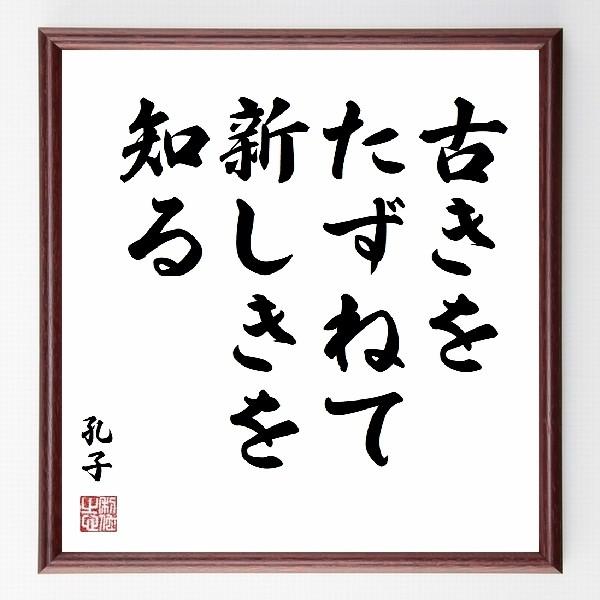 古きを
たずねて
新しきを
知る
孔子